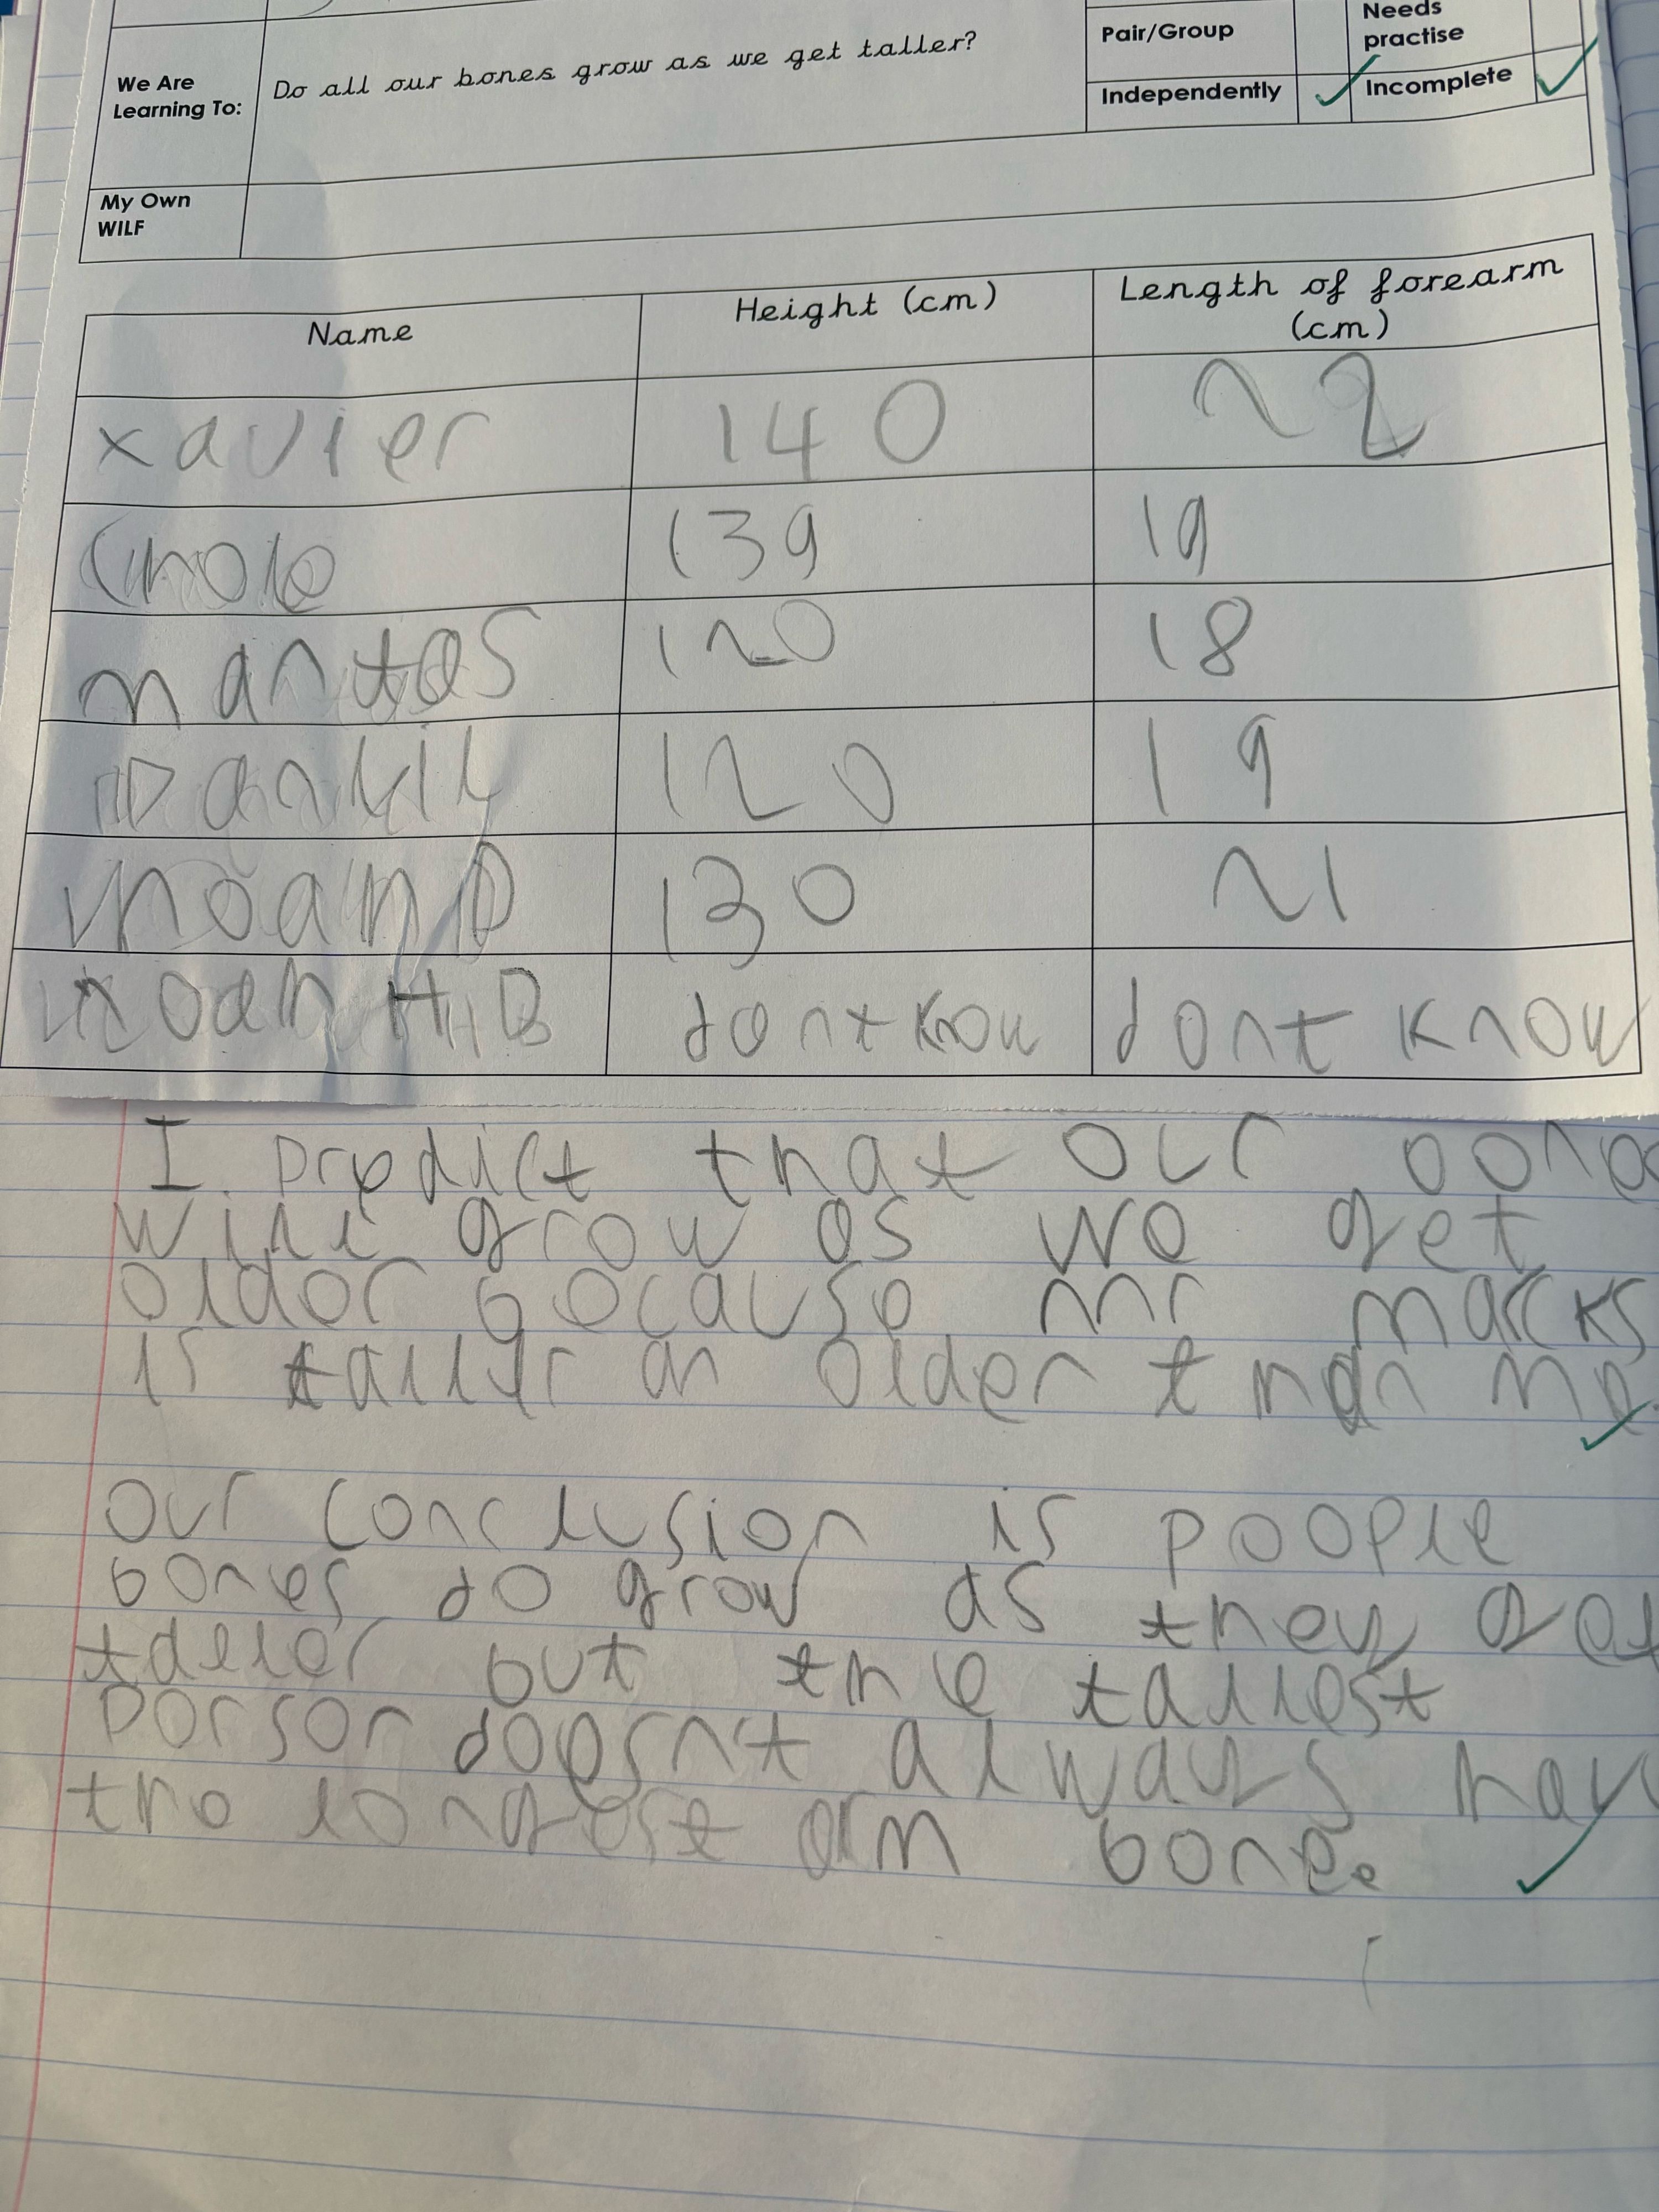 Pair/Group
Needs practise
We Are Learning To:
Do all our bones grow as we get taller?
Independently
Incomplete
My Own WILF
Name Height (cm) Length of forearm (cm)
xavier 140 22
Chole 139 19
mantas 120 18
120 19
noah D 130 21
noah H.B dont know dont know
I predict that our bone
will grow as we get
older because mr marks
is taller an older than me.
our conclusion is people
bones do grow as they get
taller but the tallest
person doesn't always hav
the longest arm bone.